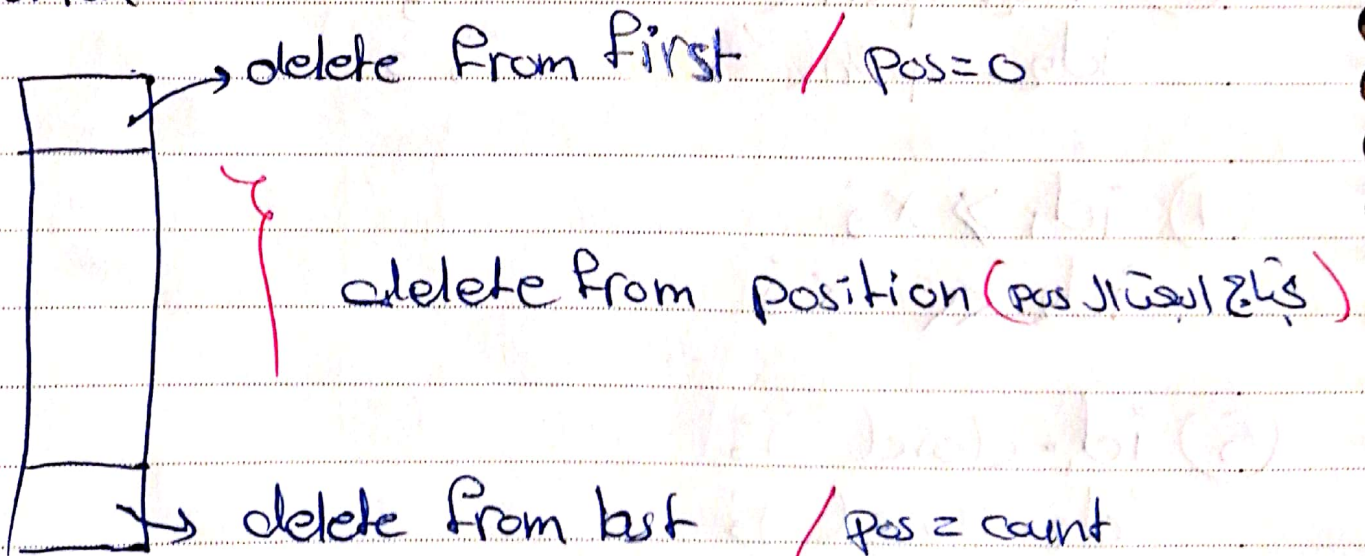 delete from first / pos=0
delete from position (pos ال)
delete from last / pos = count